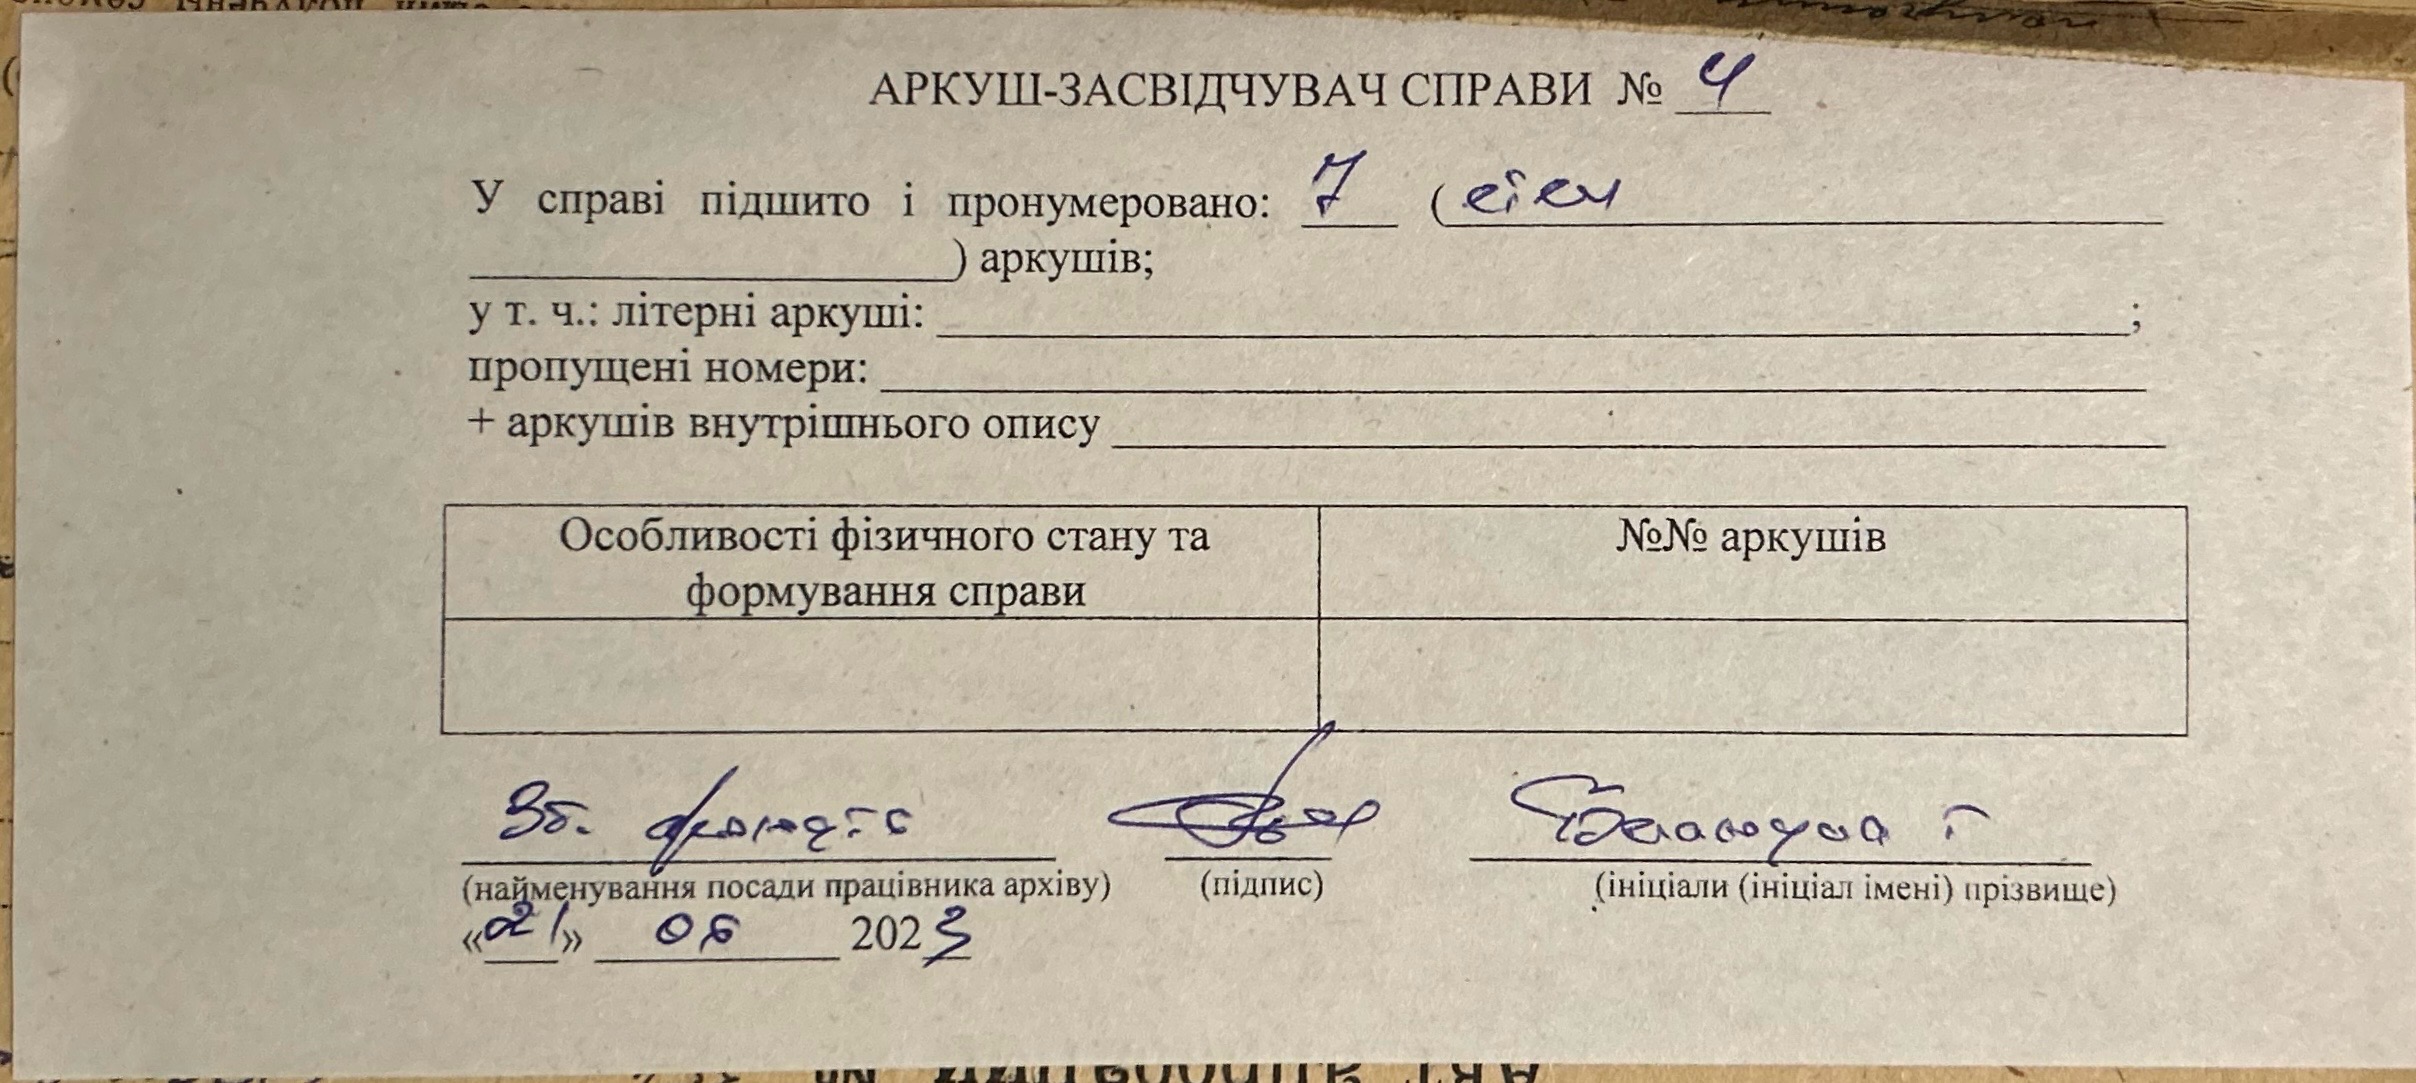 АРКУШ-ЗАСВІДЧУВАЧ СПРАВИ № 4
У справі підшито і пронумеровано: 7 ( сім
) аркушів;
у т. ч.: літерні аркуші: ;
пропущені номери:
+ аркушів внутрішнього опису
Особливості фізичного стану та
формування справи
№№ аркушів
Зб. фондів
(найменування посади працівника архіву) (підпис) (ініціали (ініціал імені) прізвище)
«21» 06 2023